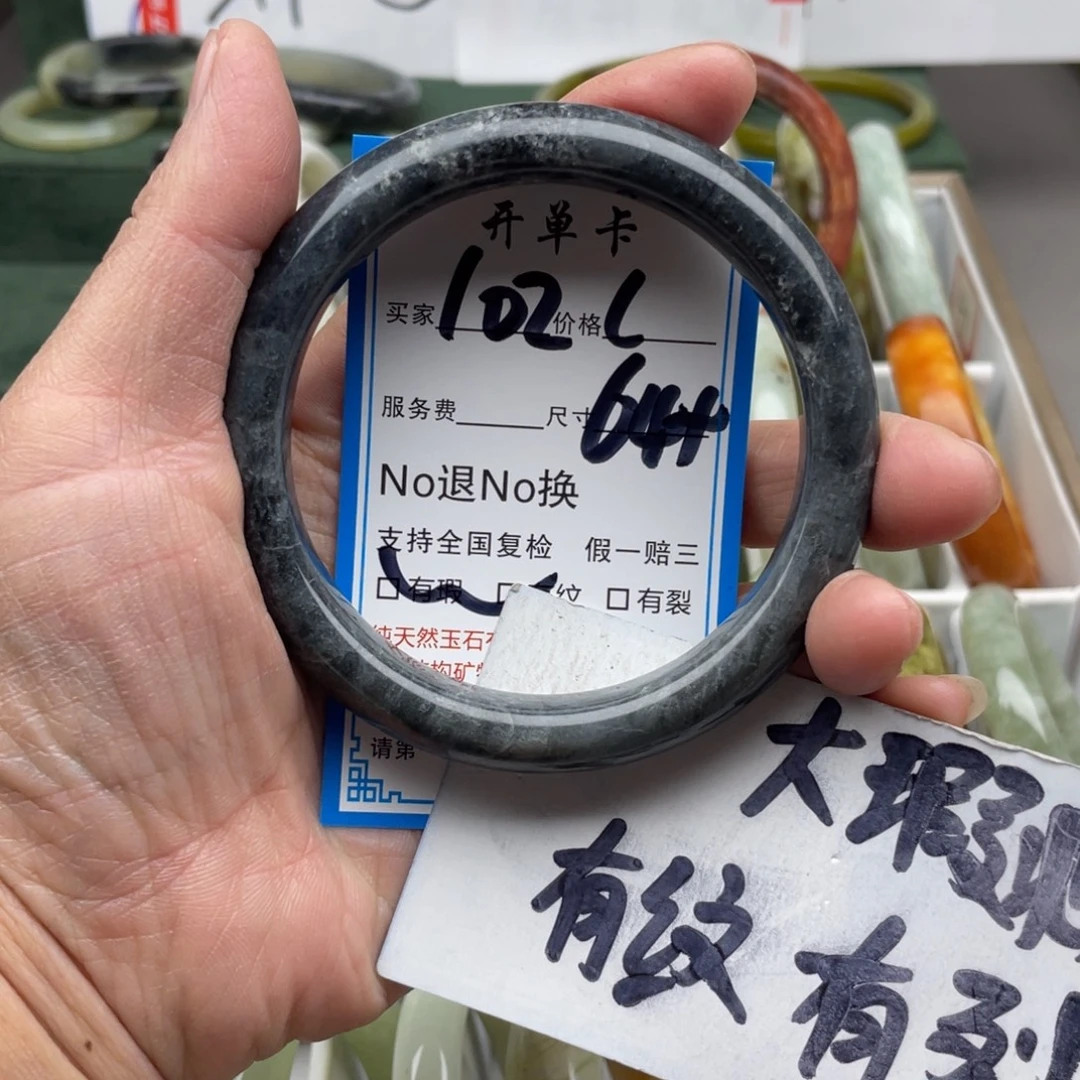 开单卡
买家 102 价格 L
服务费 尺寸 64+
No退No换
支持全国复检 假一赔三
□有瑕 □ 纹 □有裂
纯天然玉石
构矿
请第
大瑕疵
有纹
有裂